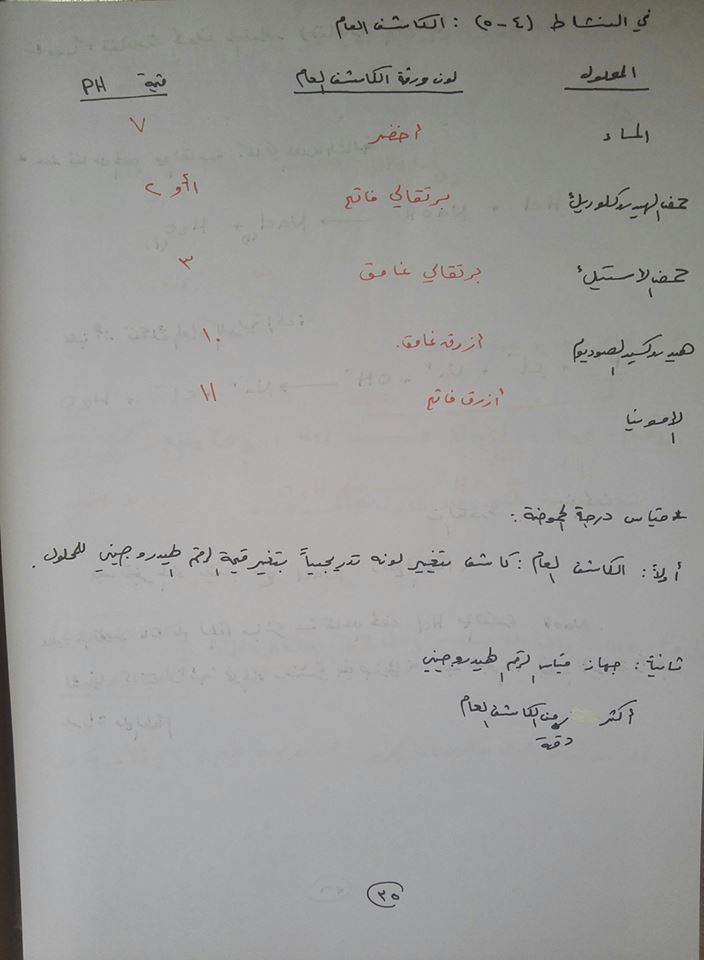 في النشاط (٤-٥) : الكاشف العام
المحلول لون ورقة الكاشف العام قيمة PH
الماء أخضر ٧
حمض الهيدروكلوريك برتقالي فاتح ١ أو ٢
حمض الاستيك برتقالي غامق ٣
هيدروكسيد الصوديوم أزرق غامق. ١٠
الامونيا أزرق فاتح ١١
* قياس درجة الحموضة :
أولاً : الكاشف العام : كاشف يتغير لونه تدريجياً بتغير قيمة الرقم الهيدروجيني للمحلول .
ثانياً : جهاز قياس الرقم الهيدروجيني
أكثر دقة من الكاشف العام
٣٥